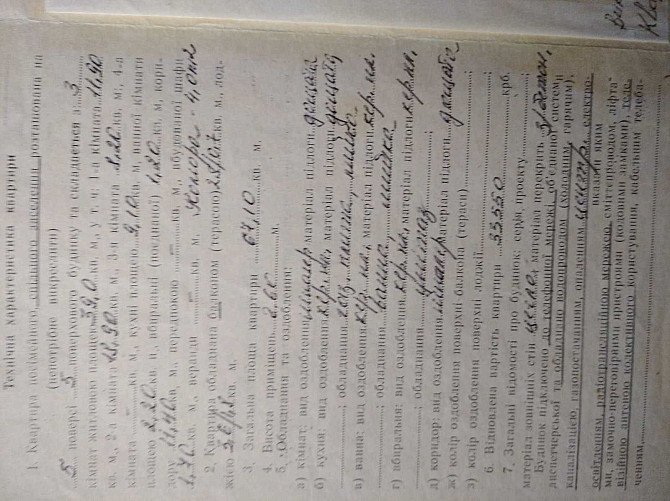 Технічна характеристика квартири
1. Квартира несімейного, спільного заселення розташована на
(непотрібне викреслити)
5 поверсі 5 поверхового будинку та складається з 3
кімнат житловою площею 39,0 кв. м., у т. ч: 1-а кімната 11,90
кв. м., 2-а кімната кв. м., 3-я кімната кв. м; 4-а
кімната кв. м, кухні площею 9,10 кв. м, ванної кімнати
площею 2,20 кв. м, вбиральні (поєднаної) 1,20 кв. м, кори-
дору 11,40 кв. м, передпокою кв. м, вбудованої шафи
1,70 кв. м, веранди кв. м,
2. Квартира обладнана балконом (терасою) кв. м, лод-
жією кв. м.
3. Загальна площа квартири 67,10 кв. м.
4. Висота приміщень 2.60 м.
5. Обладнання та оздоблення:
а) кімнат: вид оздоблення шпалир матеріал підлоги дощата
б) кухня: вид оздоблення кер.пл., матеріал підлоги дощата
; обладнання газ. плита, мийка
в) ванна: вид оздоблення кер.пл., матеріал підлоги кер.пл.
; обладнання ванна, мийка
г) вбиральня: вид оздоблення кер.пл., матеріал підлоги кер.пл.
; обладнання унитаз ;
д) коридор: вид оздоблення шпалер матеріал підлоги дощата
ж) колір оздоблення поверхні балкона (тераси) ;
з) колір оздоблення поверхні лоджії ;
6. Відновлена вартість квартири 33550 крб.
7. Загальні відомості про будинок: серія, проекту ;
матеріал зовнішніх стін цегла, матеріал перекрить з/бетон.
Будинок підключено до телефонної мережі, об'єднаної системи
диспетчерської та обладнано водопроводом (холодним і гарячим),
каналізацією, газопостачанням, опаленням центр., електро-
(вказати яким)
освітленням, радіотрансляційною мережею, сміттєпроводом, ліфта-
ми, замочно-переговірними пристроями (кодовими замками), теле-
візійною антеною колективного користування, кабельним телеба-
ченням